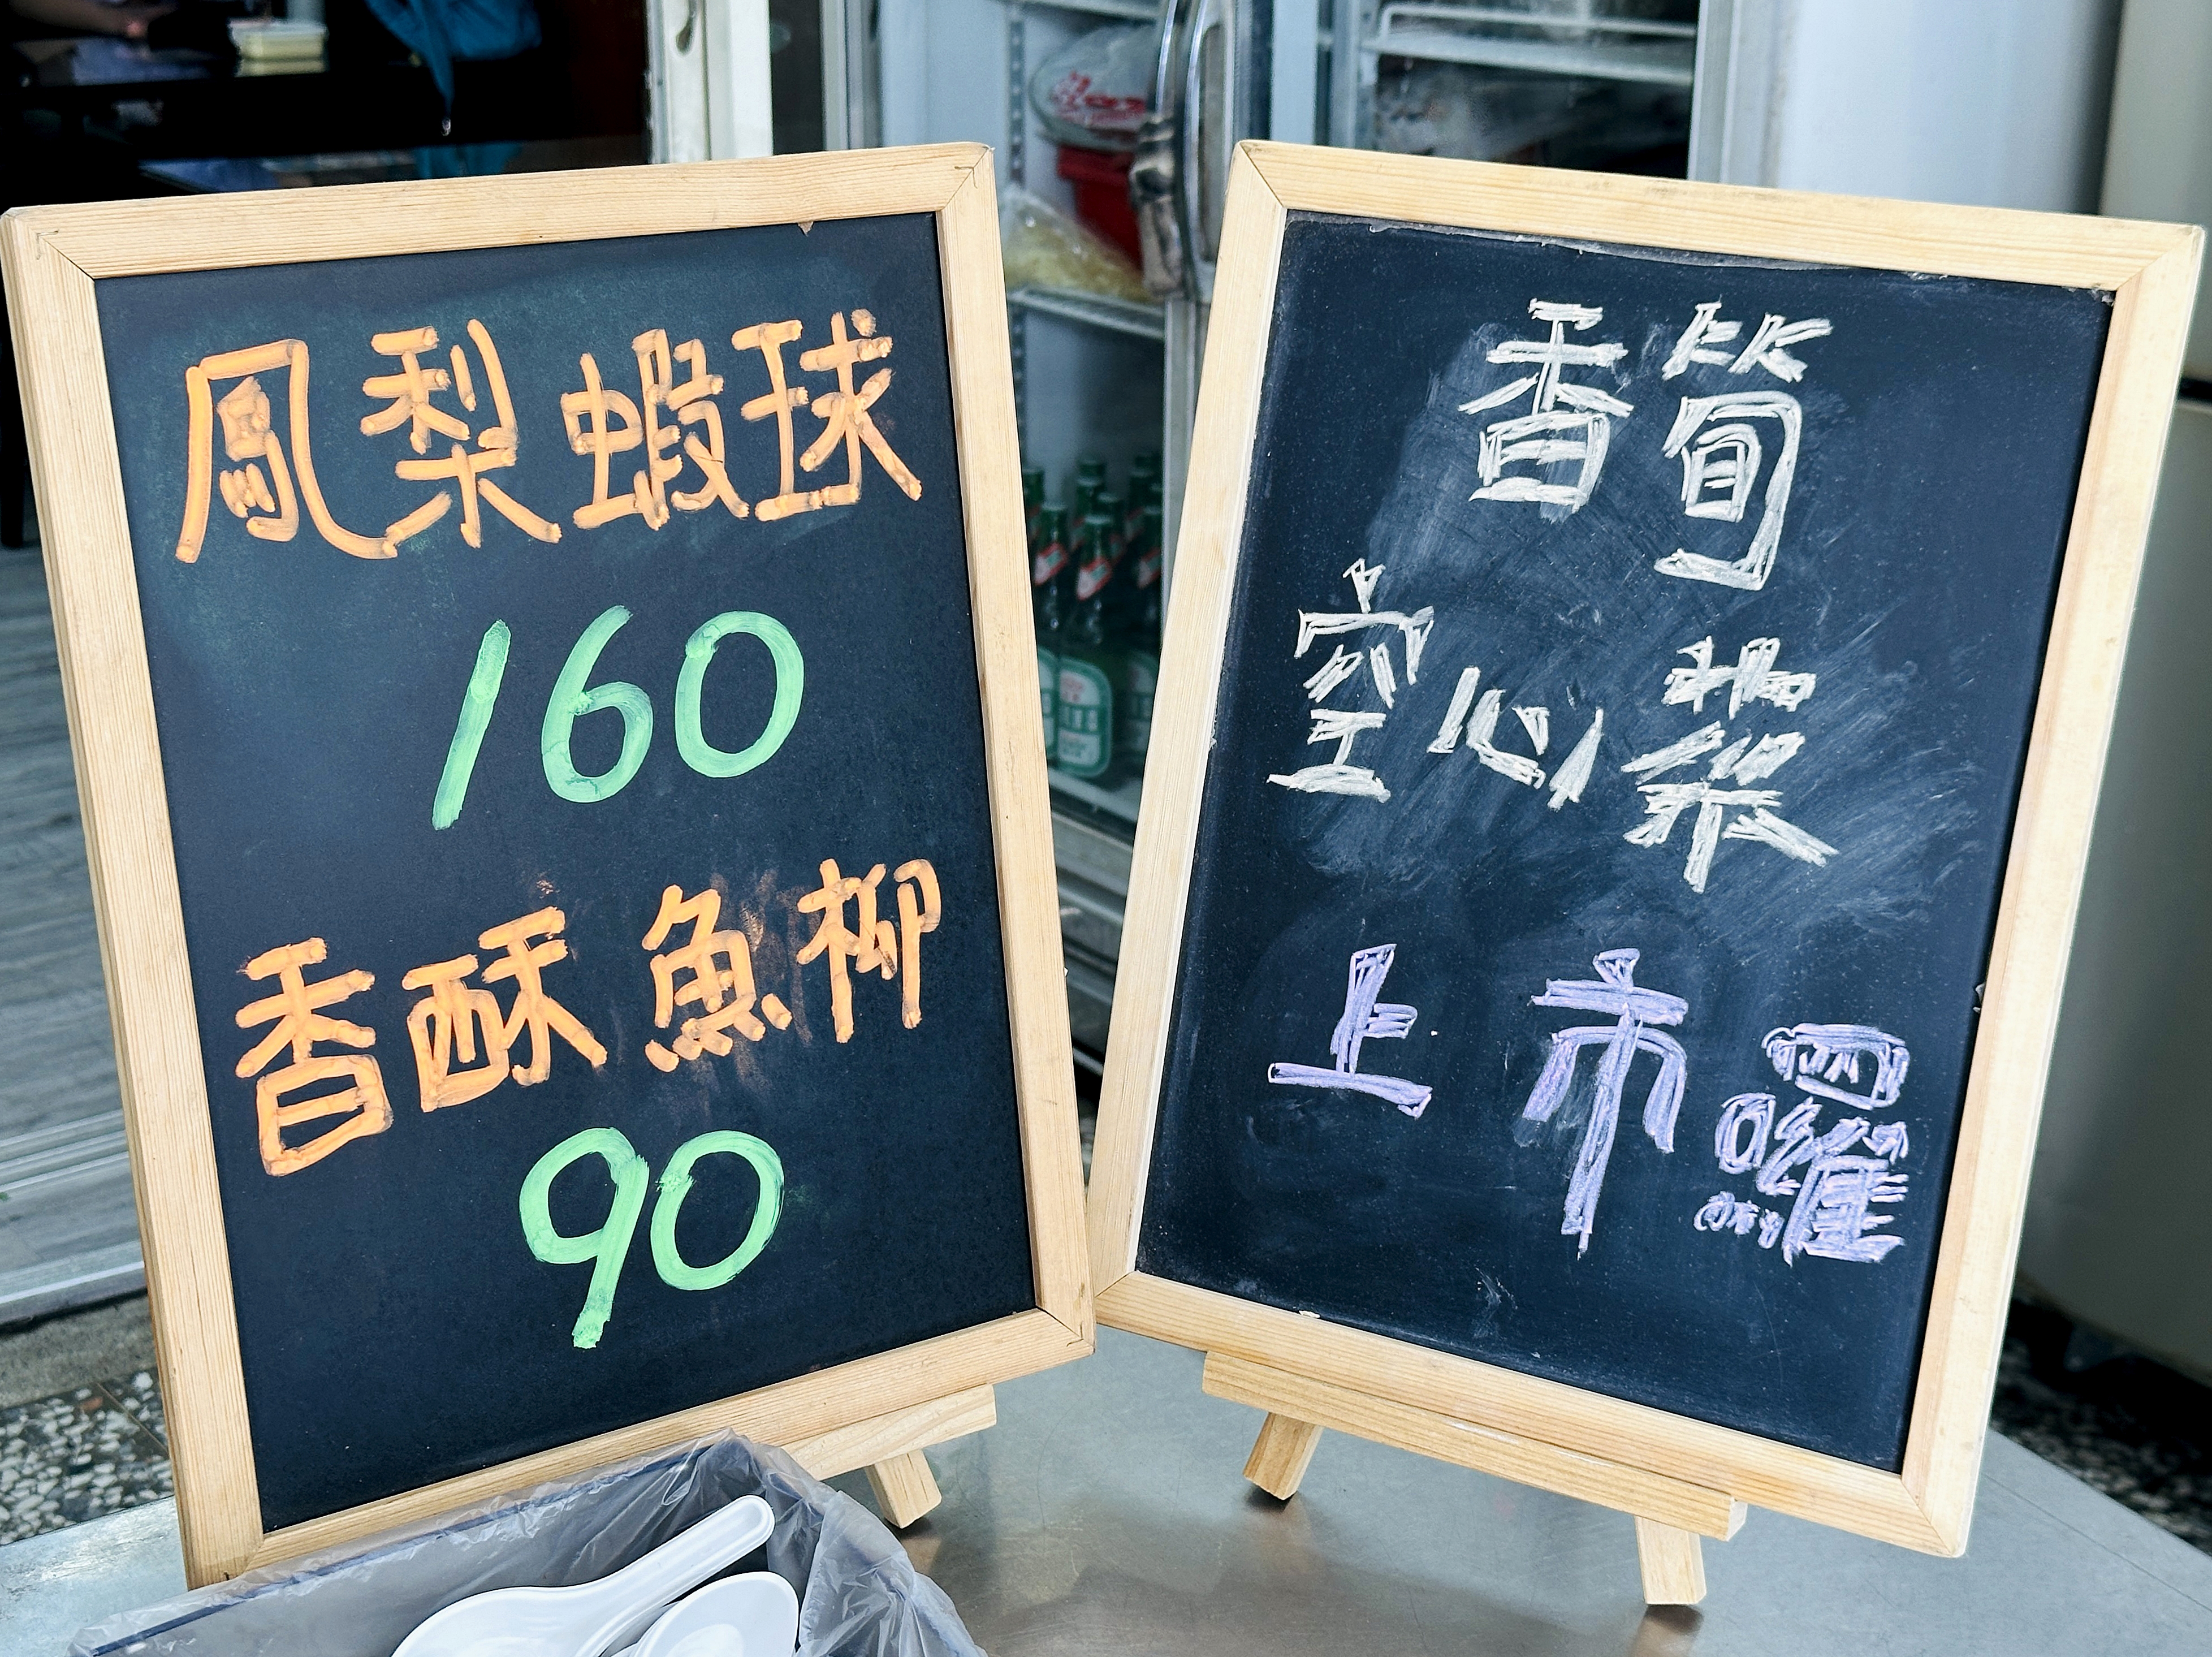 鳳梨蝦球
160
香酥魚柳
90
香筍
空心菜
上市囉